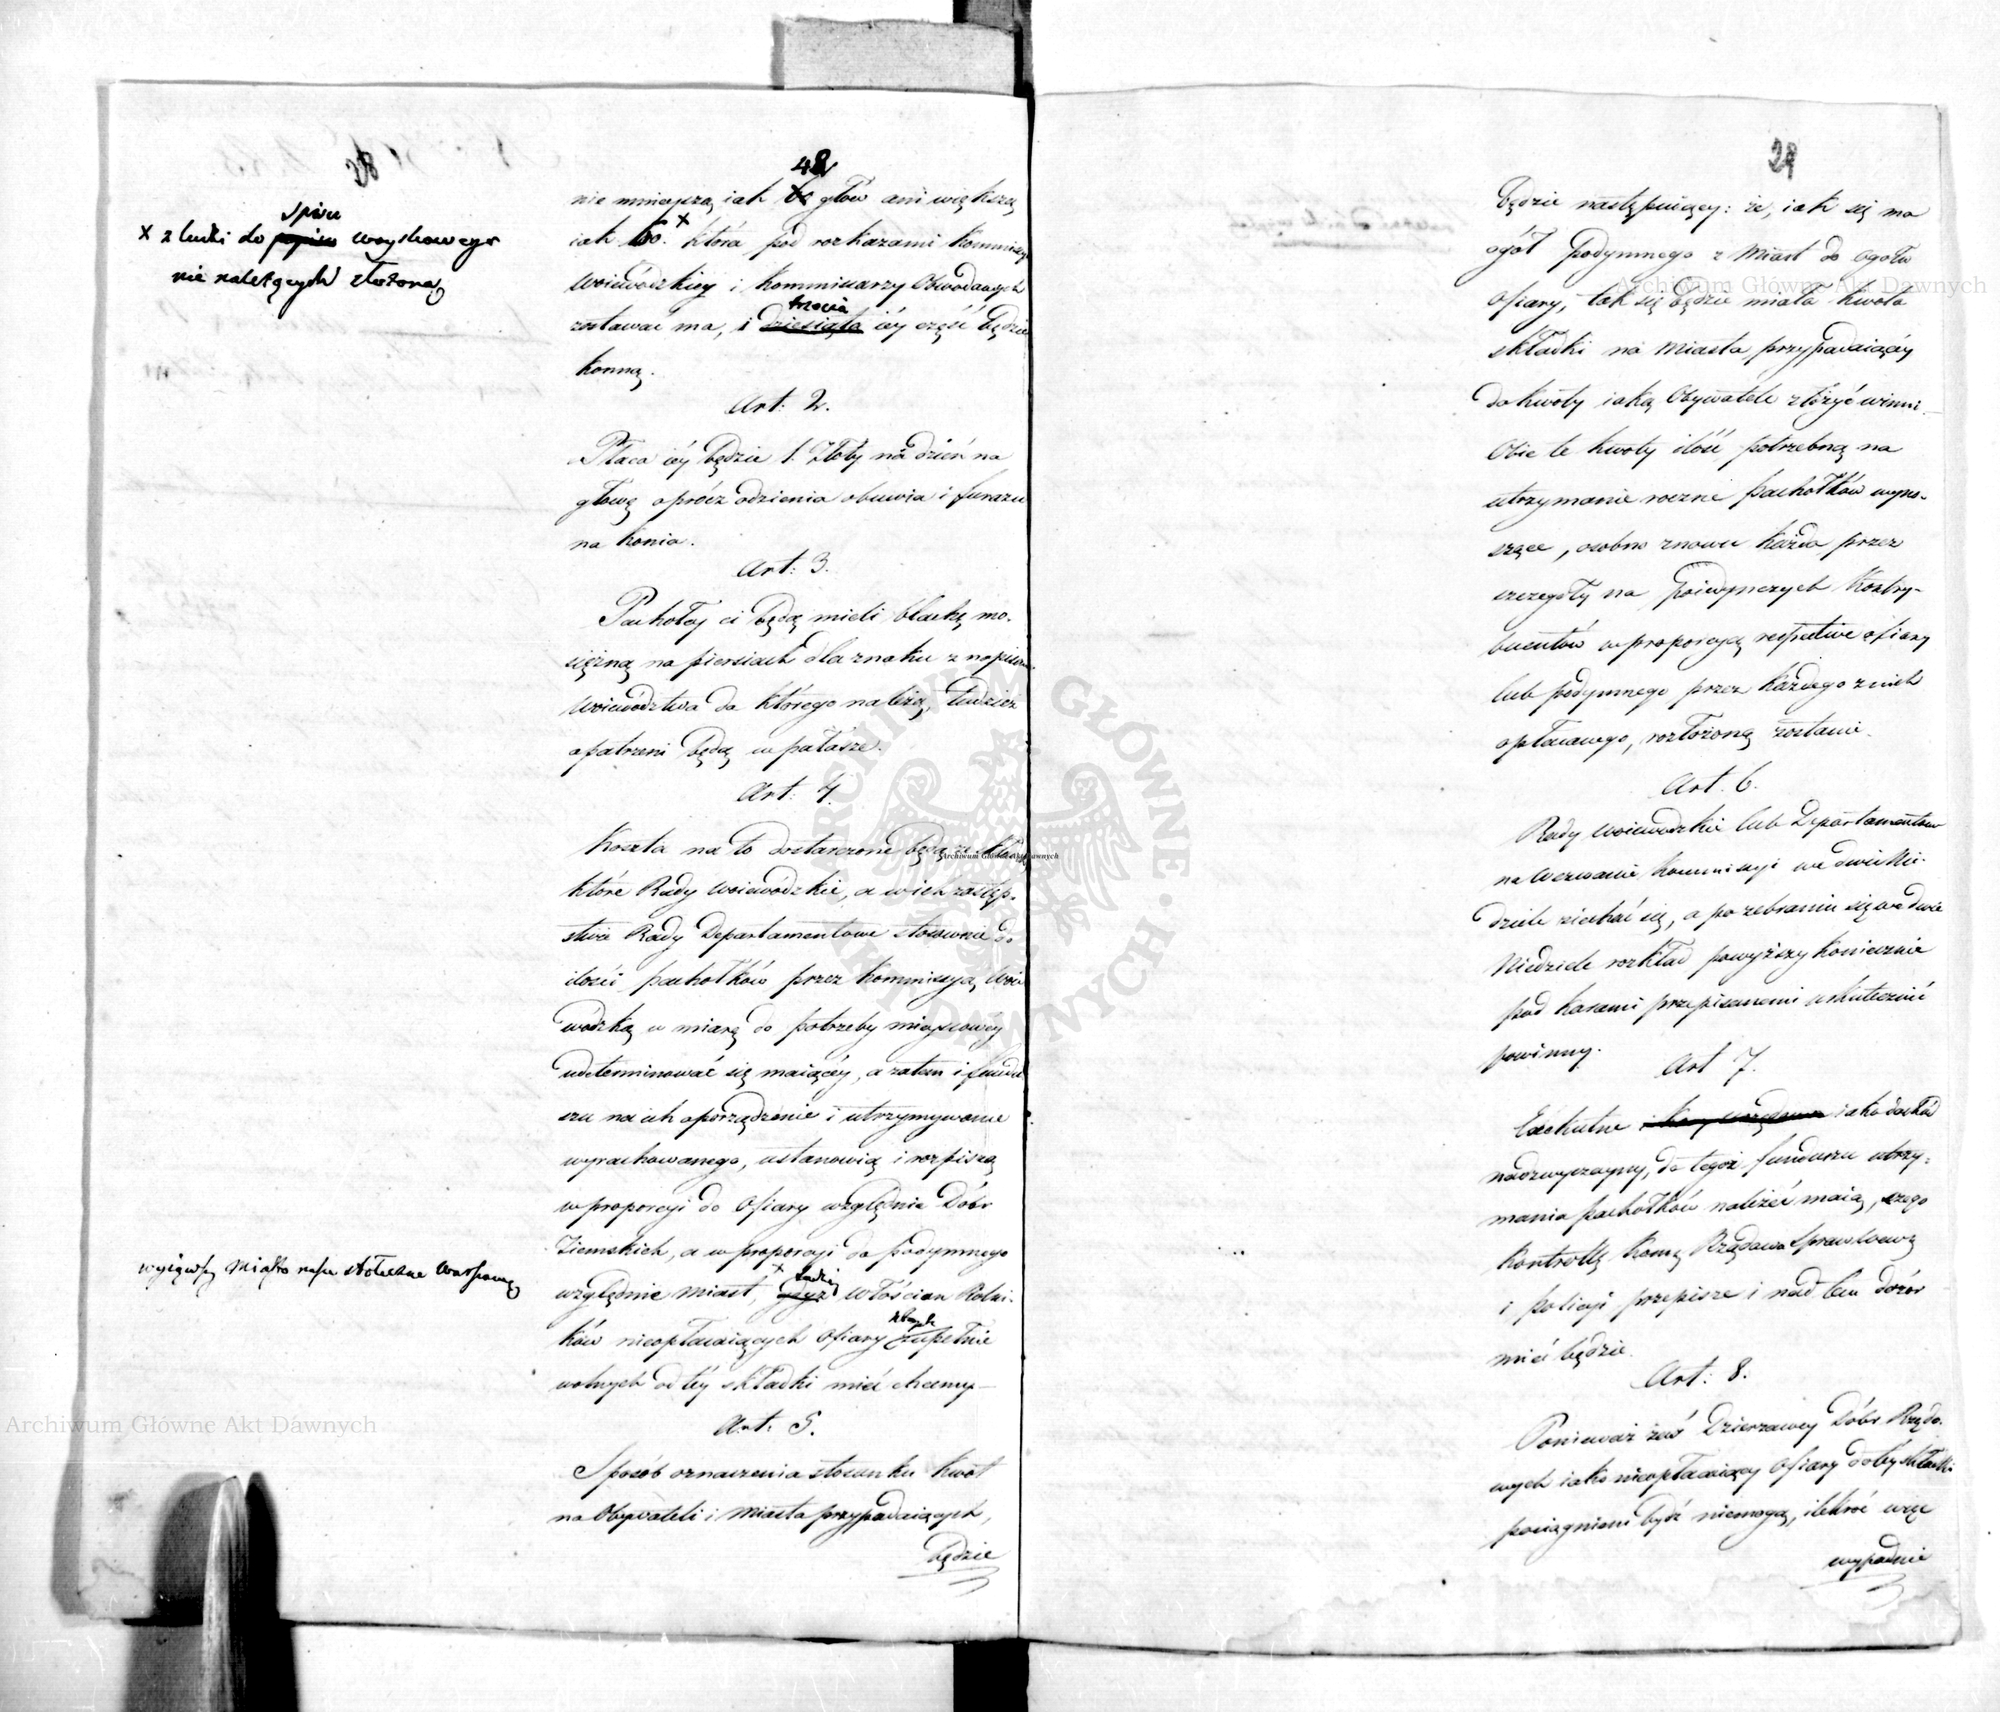 28
48
nie mnieyszą iak głów ani większą
iak 60. × która pod rozkazami Kommissyi
Woiewódzkiey i Kommissarzy Obwodowych
trzecia
zostawać ma, i dziesiąta iéy część będzie
konną.
Spisu
× z ludzi do popisu woyskowego
nie należących złożona
Art: 2.
Płaca iéy będzie 1. Złoty na dzień na
głowę oprócz odzienia obuwia i furażu
na konia.
Art: 3.
Pachołcy ci będą mieli blachę mo-
siężną na piersiach dla znaku z napisem
Woiewództwa do którego należą, tudzież
opatrzeni będą w pałasze.
Art: 4.
Koszta na to dostarczone będą ze składki
które Rady Woiewódzkie, a w ich zastęp-
stwie Rady Departamentowe stosownie do
ilości pachołków przez Kommissyą Woie
wódzką w miarę do potrzeby mieyscowéy
udeterminować się maiącéy, a zatem i fundu
szu na ich oporządzenie i utrzymywanie
wyrachowanego, ustanowią i rozpiszą
w proporcyi do Ofiary względnie Dóbr
Ziemskich, a w proporcyi do podymnego
wyiąwszy Miasto nasze stołeczne Warszawę
×
względnie Miast, Włościan Rolni-
ków nieopłacaiących Ofiary zupełnie
wolnych od téy składki mieć chcemy
Art: 5.
Sposób oznaczenia stosunku kwot
na Obywateli i Miasta przypadaiących,
będzie
29
będzie następuiący: że, iak się ma
ogół Podymnego z Miast do ogółu
Ofiary, tak się będzie miała kwota
składki na Miasta przypadaiącéy
do kwoty iaką Obywatele złożyć winni.
Obie te kwoty ilość potrzebną na
utrzymanie roczne pachołków wyno-
szące, osobno znowu każda przez
szczegóły na poiedynczych Kontry-
buentów w proporcyą respective ofiary
lub podymnego przez każdego z nich
opłacanego, rozłożoną zostanie.
Art. 6.
Rady Woiewódzkie lub Departamentowe
na wezwanie Kommissyi we dwie Nie-
dziele ziechać się, a po zebraniu się we dwie
Niedziele rozkład powyższy koniecznie
pod karami przepisanemi uskutecznić
powinny.
Art 7.
Exekutne iako dochód
nadzwyczayny, do tegoż funduszu utrzy-
mania pachołków należeć maią, czego
kontrollę Komą Rządowa Spraw Wewn
i policyi przepisze i nad tem dozór
mieć będzie.
Art: 8.
Ponieważ zaś Dzierżawcy Dóbr Rządo-
wych iako nieopłacaiący Ofiary do téy składki
pociągnieni być niemogą, ilekroć więc
wypadnie
Archiwum Główne Akt Dawnych
Archiwum Główne Akt Dawnych
Archiwum Główne Akt Dawnych
ARCHIWUM GŁÓWNE AKT DAWNYCH